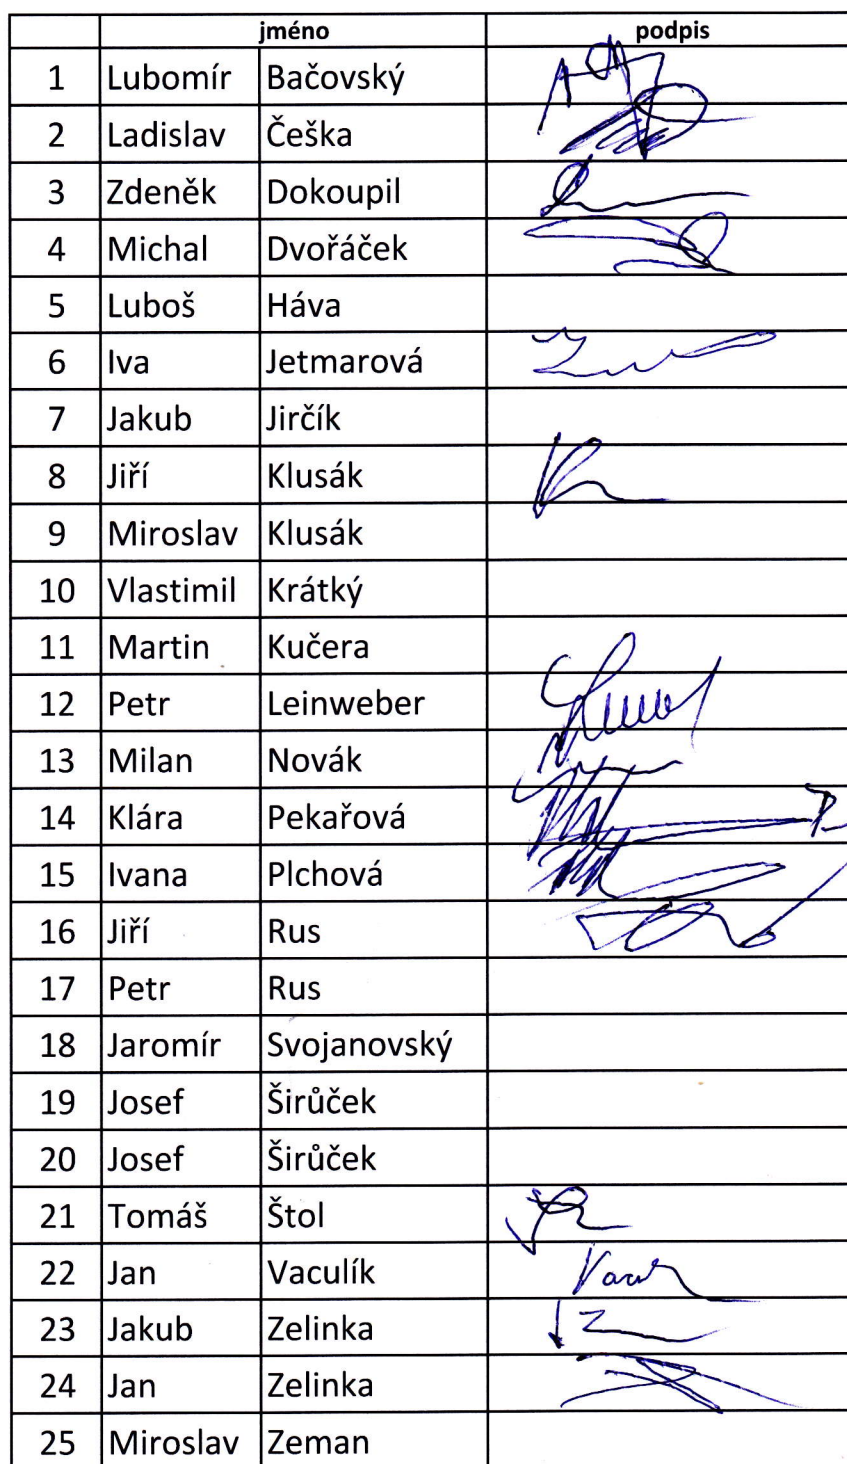 jméno podpis
1 Lubomír Bačovský
2 Ladislav Češka
3 Zdeněk Dokoupil
4 Michal Dvořáček
5 Luboš Háva
6 Iva Jetmarová
7 Jakub Jirčík
8 Jiří Klusák
9 Miroslav Klusák
10 Vlastimil Krátký
11 Martin Kučera
12 Petr Leinweber
13 Milan Novák
14 Klára Pekařová
15 Ivana Plchová
16 Jiří Rus
17 Petr Rus
18 Jaromír Svojanovský
19 Josef Širůček
20 Josef Širůček
21 Tomáš Štol
22 Jan Vaculík
23 Jakub Zelinka
24 Jan Zelinka
25 Miroslav Zeman